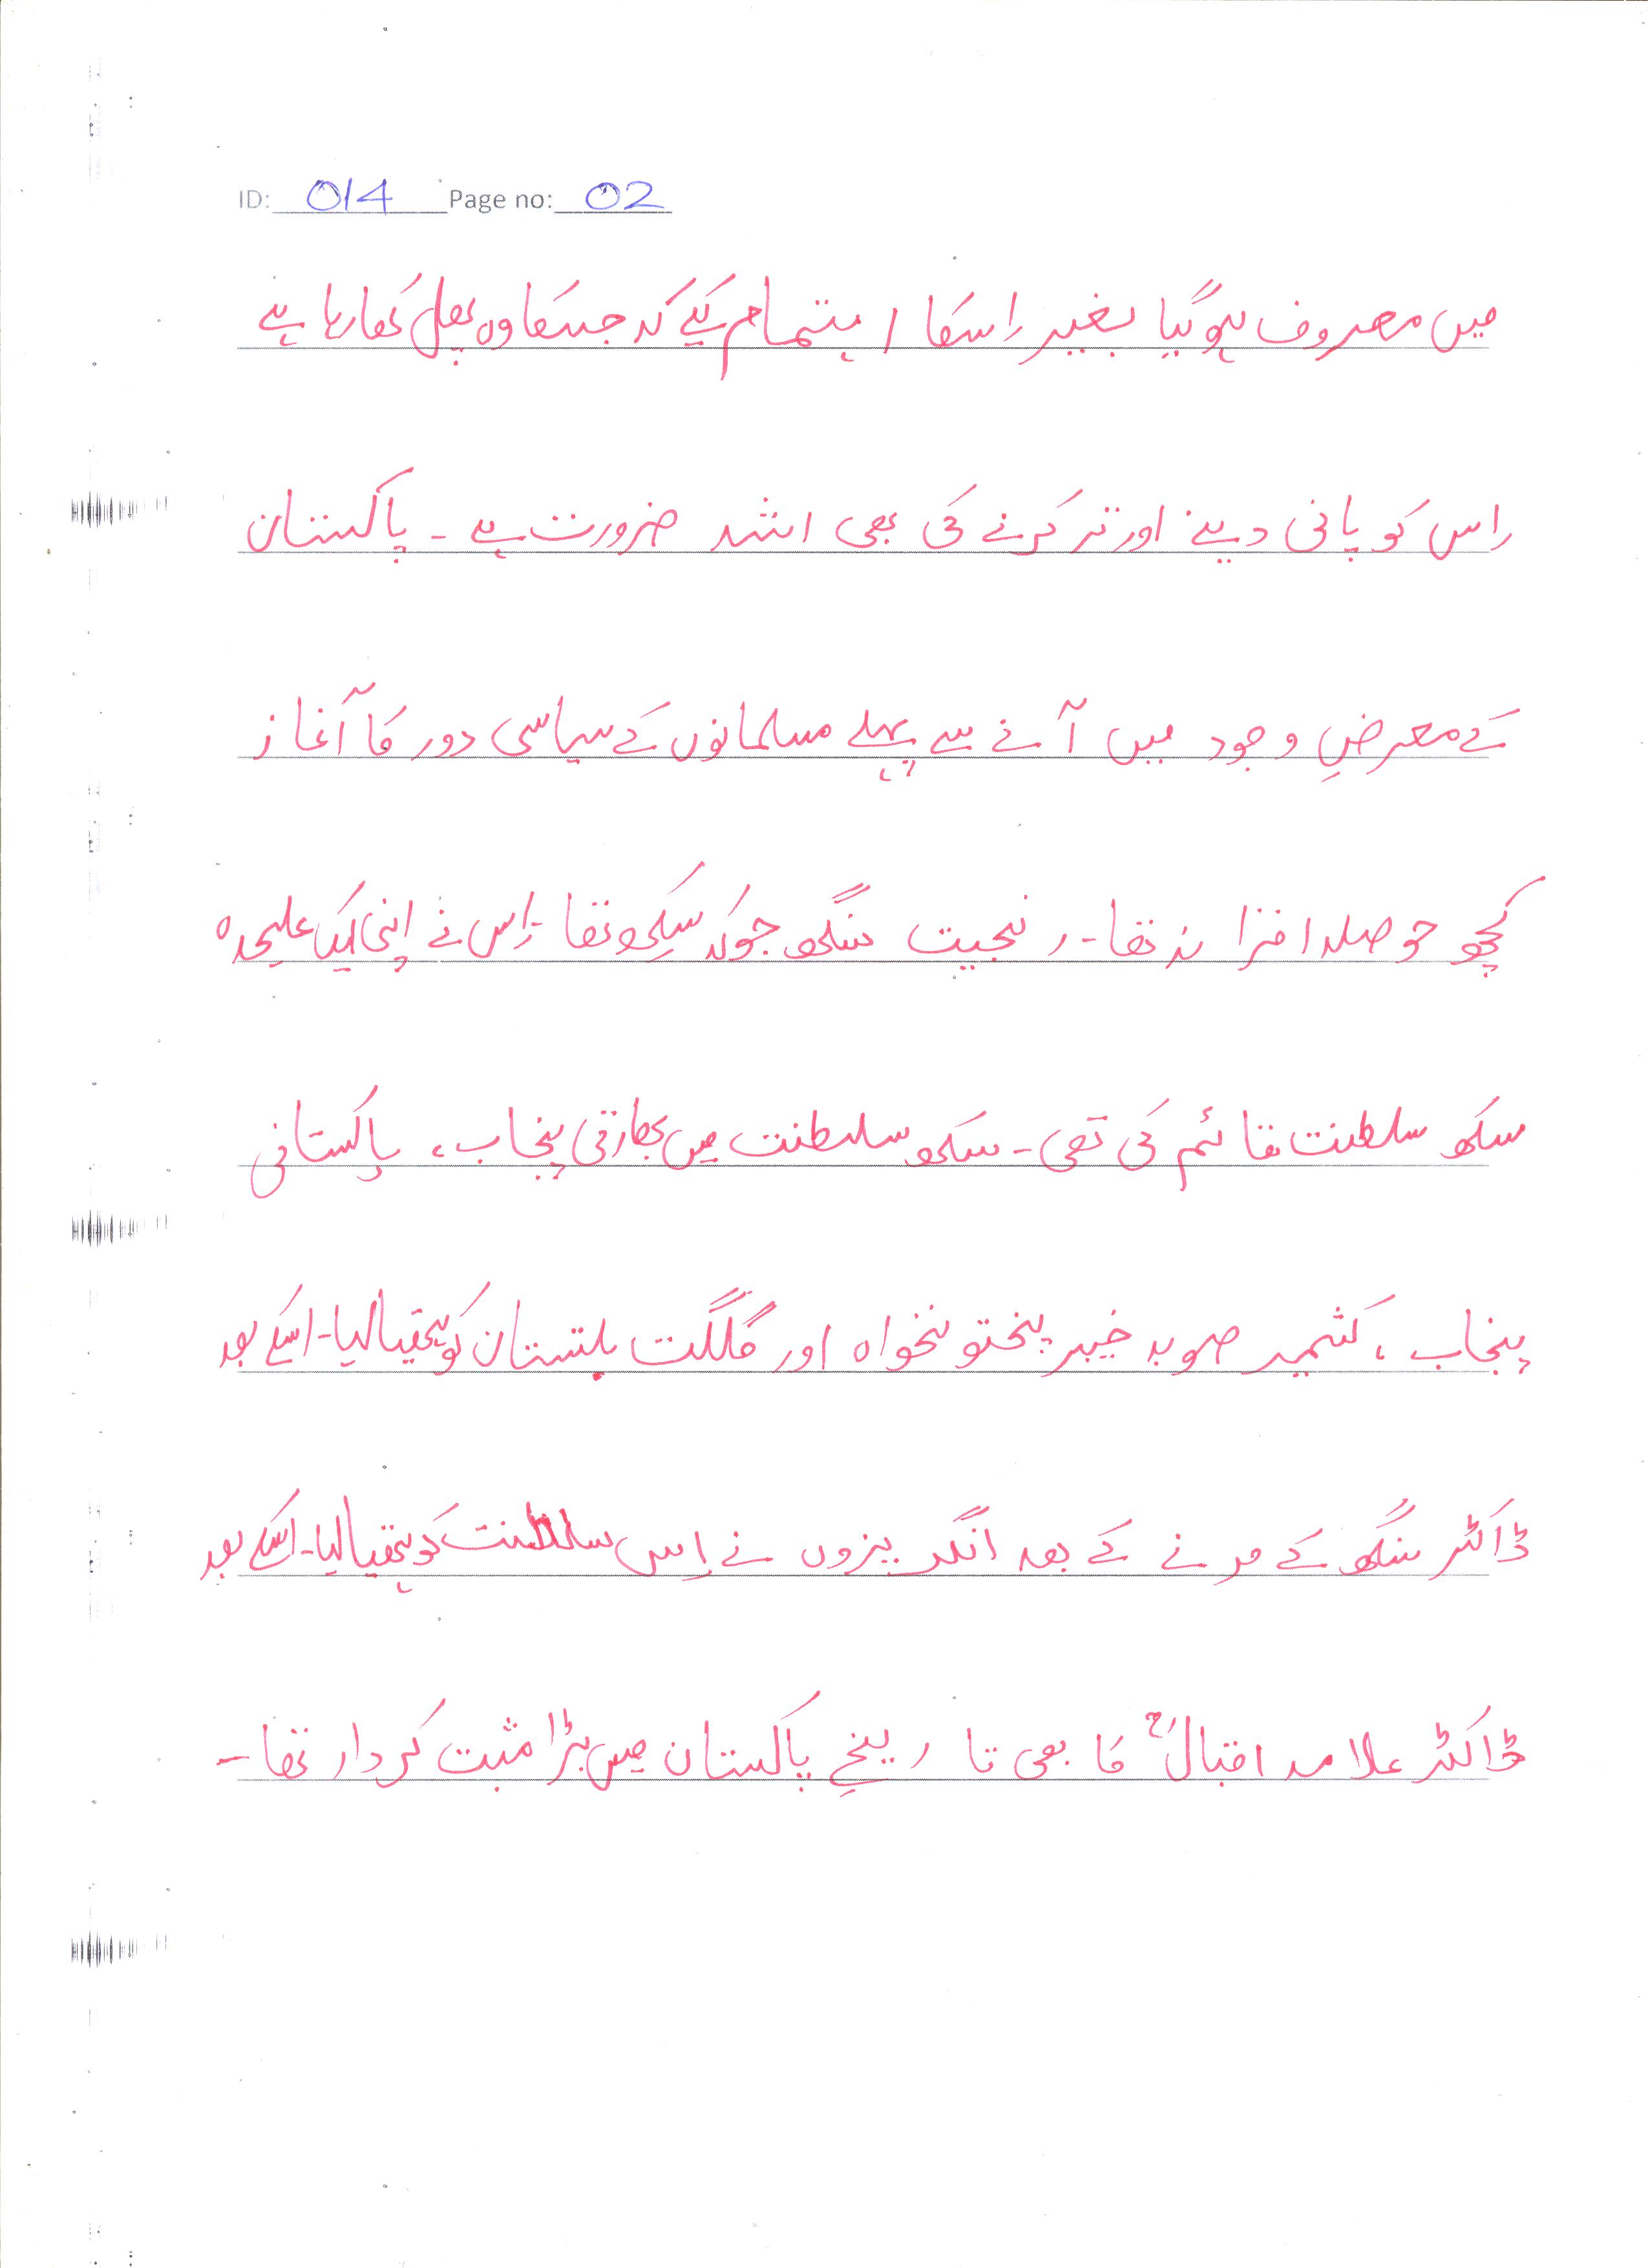 ID: 014 Page no: 02
میں مصروف ہوگیا بغیر اِسکا اہتمام کیے کہ جسکا وہ پھل کھا رہا ہے
اِس کو پانی دینے اور تر کرنے کی بھی اشد ضرورت ہے۔ پاکستان
کے معرضِ وجود میں آنے سے پہلے مسلمانوں کے سیاسی دور کا آغاز
کچھ حوصلہ افزا نہ تھا۔ رنجیت سنگھ جوکہ سِکھ تھا۔ اِس نے اپنی ایک علیحدہ
سکھ سلطنت قائم کی تھی۔ سکھ سلطنت میں بھارتی پنجاب، پاکستانی
پنجاب، کشمیر صوبہ خیبر پختونخواہ اور گلگت بلتستان کو ہتھیا لیا۔ اسکے بعد
ڈاکٹر سنگھ کے مرنے کے بعد انگریزوں نے اِس سلطنت کو ہتھیا لیا۔ اسکے بعد
ڈاکٹر علامہ اقبالؒ کا بھی تاریخِ پاکستان میں بڑا مثبت کردار تھا۔